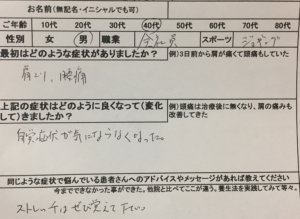 お名前(無記名・イニシャルでも可)
ご年齢 10代 20代 30代 40代 50代 60代 70代 80代
性別 女 男 職業 会社員 スポーツ ジョギング
最初はどのような症状がありましたか？ (例)3日前から肩が痛くて頭痛もしていた
肩こり、腰痛
上記の症状はどのように良くなって(変化して)きましたか？ (例)頭痛は治療後に無くなり、肩の痛みも改善してきた
自覚症状が気にならなくなった。
同じような症状で悩んでいる患者さんへのアドバイスやメッセージがあれば教えてください
今までできなかった事ができた。他院と比べてここが違う。養生法を実践してみて等々。
ストレッチはぜひ覚えて下さい。